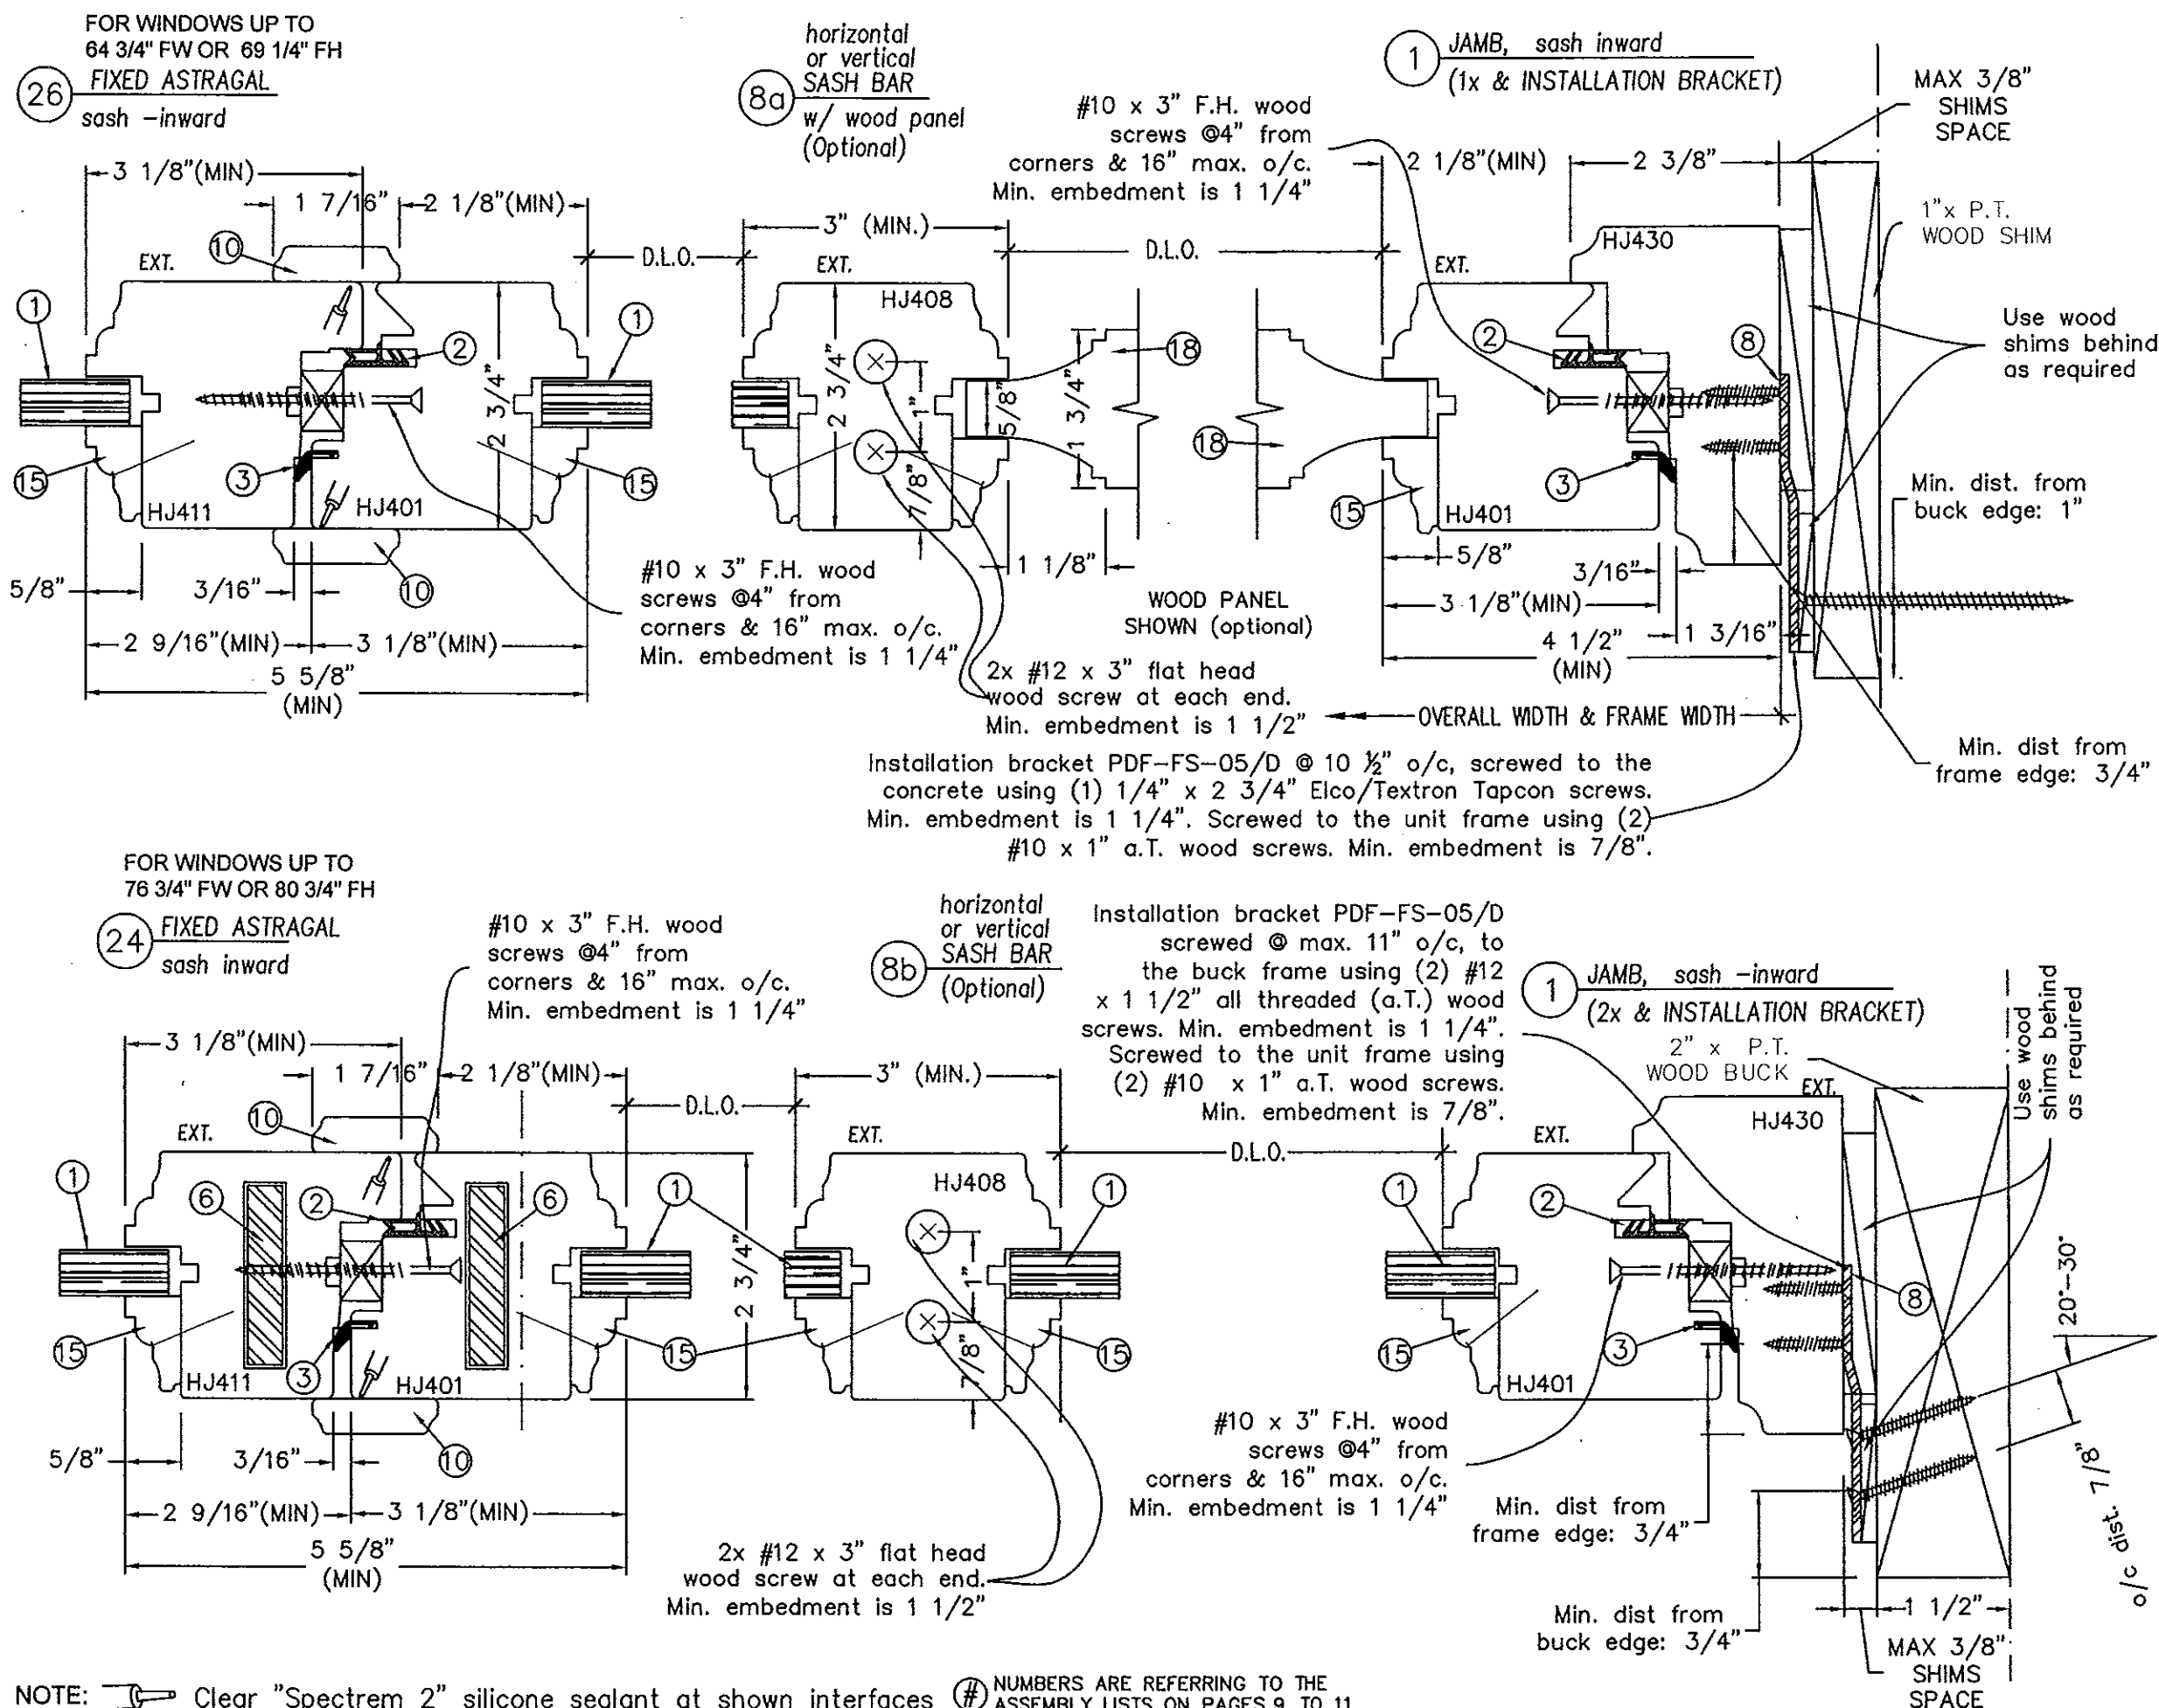 FOR WINDOWS UP TO
64 3/4" FW OR 69 1/4" FH
26
FIXED ASTRAGAL
sash -inward
3 1/8"(MIN)
1 7/16"
2 1/8"(MIN)
10
EXT.
1
2
1
2 3/4"
15
3
15
HJ411
HJ401
5/8"
3/16"
10
2 9/16"(MIN)
3 1/8"(MIN)
5 5/8"
(MIN)
#10 x 3" F.H. wood
screws @4" from
corners & 16" max. o/c.
Min. embedment is 1 1/4"
horizontal
or vertical
8a
SASH BAR
w/ wood panel
(Optional)
3" (MIN.)
D.L.O.
D.L.O.
EXT.
HJ408
2 3/4"
1"
7/8"
5/8"
1 3/4"
18
18
1 1/8"
WOOD PANEL
SHOWN (optional)
2x #12 x 3" flat head
wood screw at each end.
Min. embedment is 1 1/2"
1
JAMB, sash inward
(1x & INSTALLATION BRACKET)
#10 x 3" F.H. wood
screws @4" from
corners & 16" max. o/c.
Min. embedment is 1 1/4"
2 1/8"(MIN)
2 3/8"
MAX 3/8"
SHIMS
SPACE
1"x P.T.
WOOD SHIM
HJ430
EXT.
2
8
Use wood
shims behind
as required
3
15
HJ401
Min. dist. from
buck edge: 1"
5/8"
3/16"
3 1/8"(MIN)
1 3/16"
4 1/2"
(MIN)
OVERALL WIDTH & FRAME WIDTH
Min. dist from
frame edge: 3/4"
Installation bracket PDF-FS-05/D @ 10 ½" o/c, screwed to the
concrete using (1) 1/4" x 2 3/4" Elco/Textron Tapcon screws.
Min. embedment is 1 1/4". Screwed to the unit frame using (2)
#10 x 1" a.T. wood screws. Min. embedment is 7/8".
FOR WINDOWS UP TO
76 3/4" FW OR 80 3/4" FH
24
FIXED ASTRAGAL
sash inward
#10 x 3" F.H. wood
screws @4" from
corners & 16" max. o/c.
Min. embedment is 1 1/4"
3 1/8"(MIN)
1 7/16"
2 1/8"(MIN)
10
EXT.
1
6
2
6
1
2 3/4"
15
3
15
HJ411
HJ401
5/8"
3/16"
10
2 9/16"(MIN)
3 1/8"(MIN)
5 5/8"
(MIN)
horizontal
or vertical
8b
SASH BAR
(Optional)
3" (MIN.)
D.L.O.
D.L.O.
EXT.
HJ408
1
1"
7/8"
15
2x #12 x 3" flat head
wood screw at each end.
Min. embedment is 1 1/2"
Installation bracket PDF-FS-05/D
screwed @ max. 11" o/c, to
the buck frame using (2) #12
x 1 1/2" all threaded (a.T.) wood
screws. Min. embedment is 1 1/4".
Screwed to the unit frame using
(2) #10 x 1" a.T. wood screws.
Min. embedment is 7/8".
1
JAMB, sash -inward
(2x & INSTALLATION BRACKET)
2" x P.T.
WOOD BUCK
EXT.
HJ430
Use wood
shims behind
as required
EXT.
1
2
8
3
15
HJ401
20°-30°
o/c dist. 7/8"
#10 x 3" F.H. wood
screws @4" from
corners & 16" max. o/c.
Min. embedment is 1 1/4"
Min. dist from
frame edge: 3/4"
Min. dist from
buck edge: 3/4"
1 1/2"
MAX 3/8"
SHIMS
SPACE
NOTE: Clear "Spectrem 2" silicone sealant at shown interfaces
# NUMBERS ARE REFERRING TO THE
ASSEMBLY LISTS ON PAGES 9 TO 11